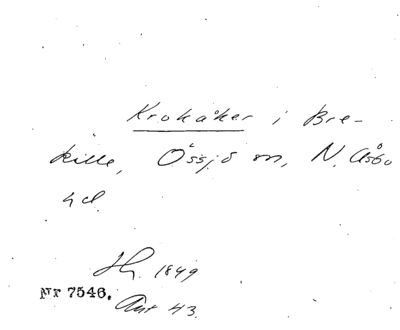 Krokåker i Bre-
kille, Össjö sn, N. Åsbo
hd.
Hg. 1849
Nr 7546.
Ant 43.